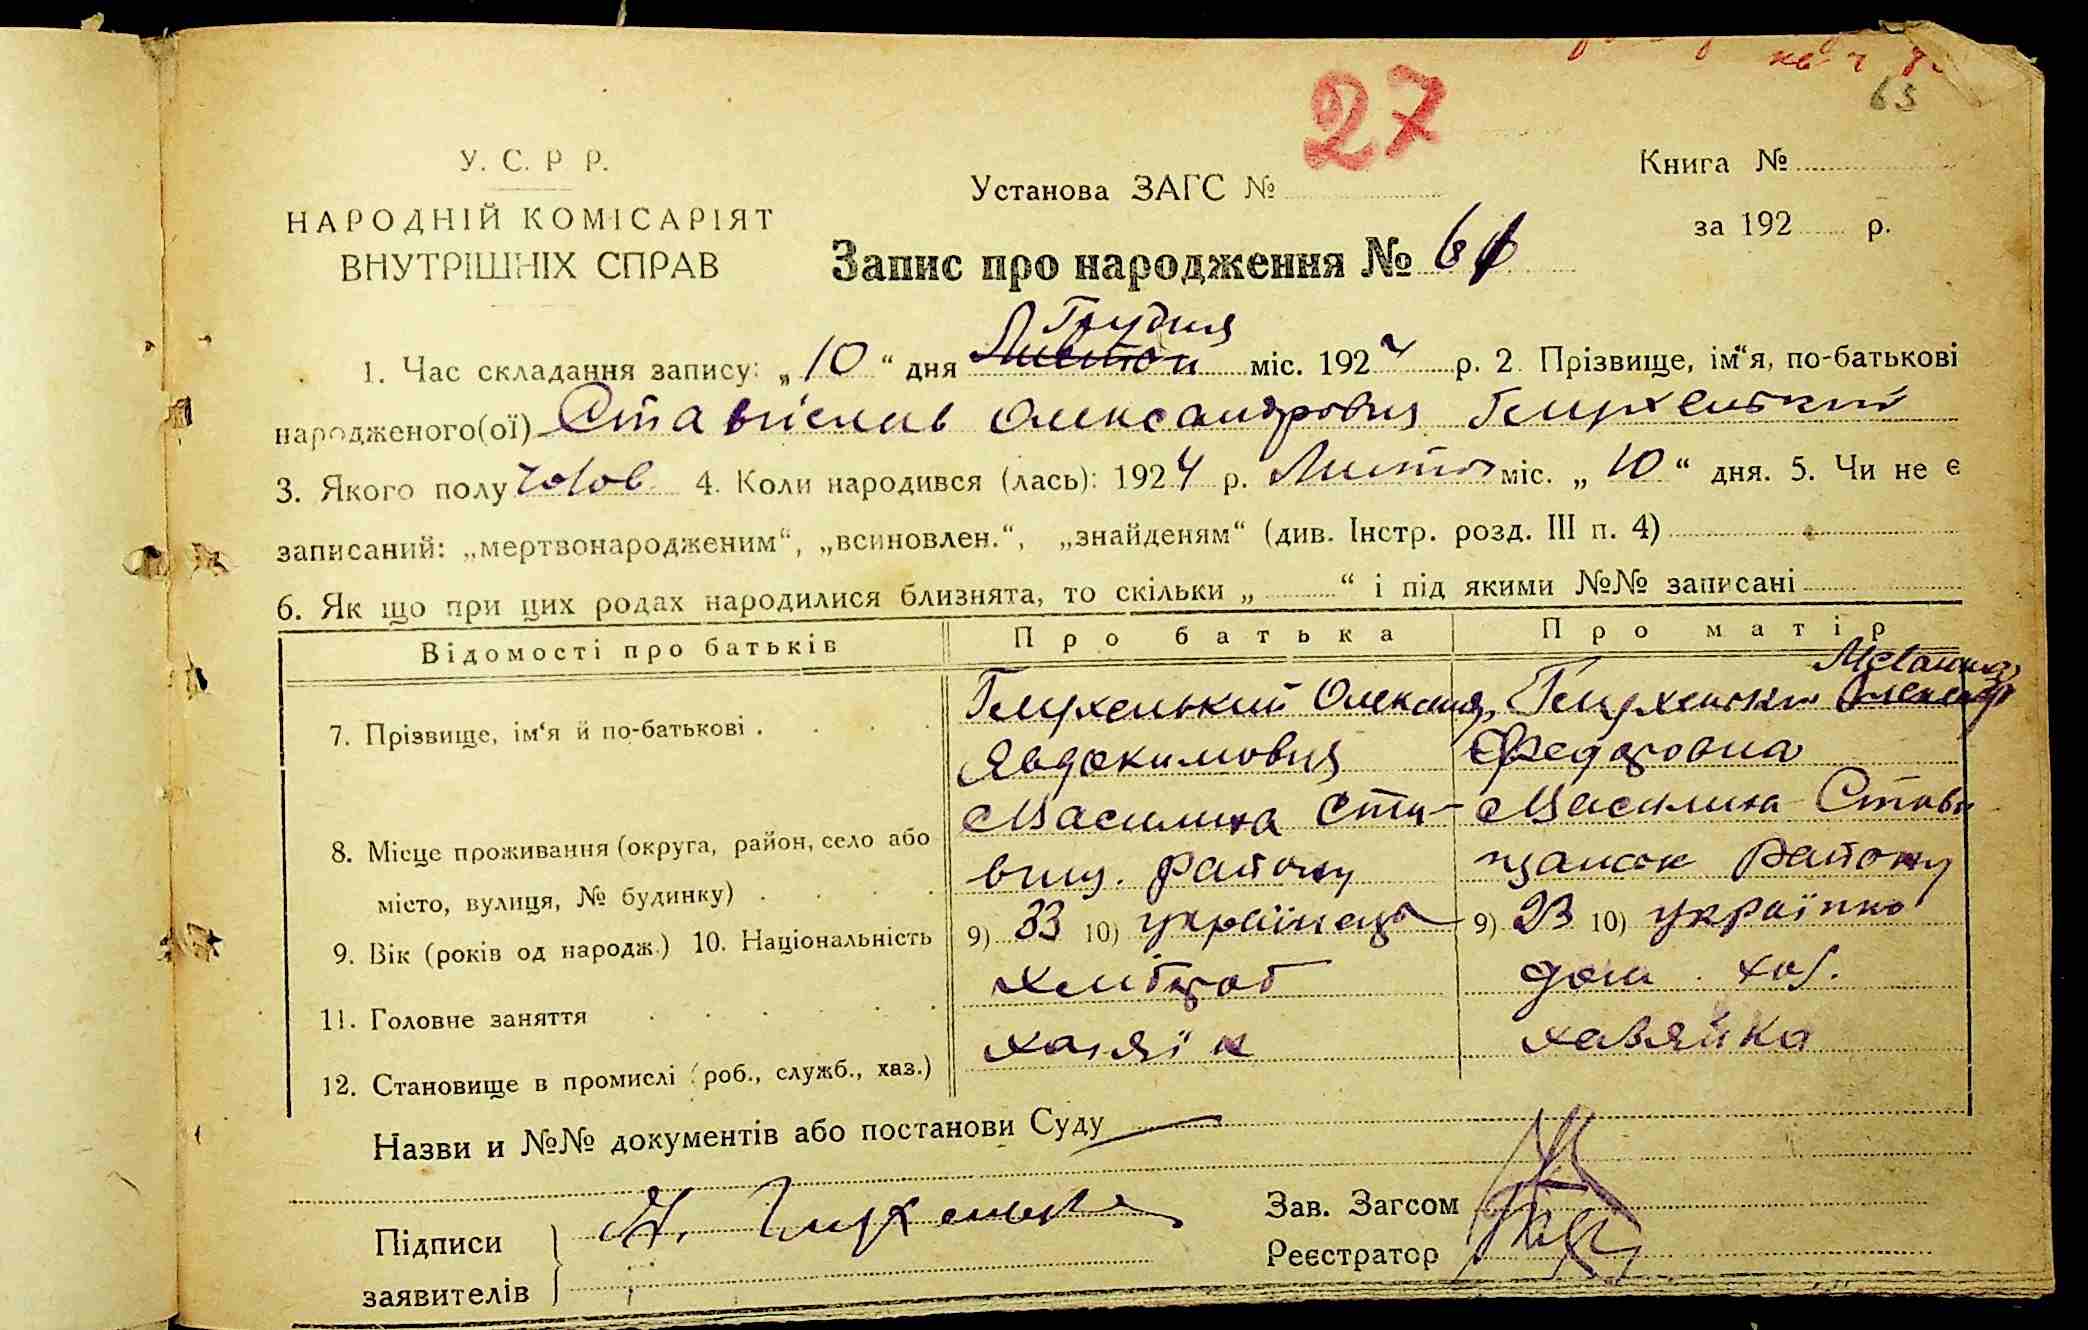 63
27
У. С. Р. Р.
НАРОДНІЙ КОМІСАРІЯТ
ВНУТРІШНІХ СПРАВ
Установа ЗАГС №
Книга №
за 192 р.
Запис про народження № 61
Грудня
1. Час складання запису: „10“ дня Листоп міс. 1924 р. 2. Прізвище, ім‘я, по-батькові
народженого(ої) Ставіслав Олександрович Глухенький
3. Якого полу чолов 4. Коли народився (лась): 1924 р. Листоп міс. „10“ дня. 5. Чи не є
записаний: „мертвонародженим“, „всиновлен.“, „знайденям“ (див. Інстр. розд. III п. 4)
6. Як що при цих родах народилися близнята, то скільки „ “ і під якими №№ записані
Відомості про батьків Про батька Про матір
7. Прізвище, ім‘я й по-батькові Глухенький Олександ Глухеньки Меланія
Явдокимович Федоровна
8. Місце проживання (округа, район, село або місто, вулиця, № будинку) Василиха Ста- Василиха Стави
вищ. району щанск району
9. Вік (років од народж.) 10. Національність 9) 33 10) українець 9) 23 10) українка
11. Головне заняття хлібороб дом. хаз.
12. Становище в промислі (роб., служб., хаз.) хазяїн хазяйка
Назви и №№ документів або постанови Суду
Підписи
заявителів
Зав. Загсом
Реєстратор